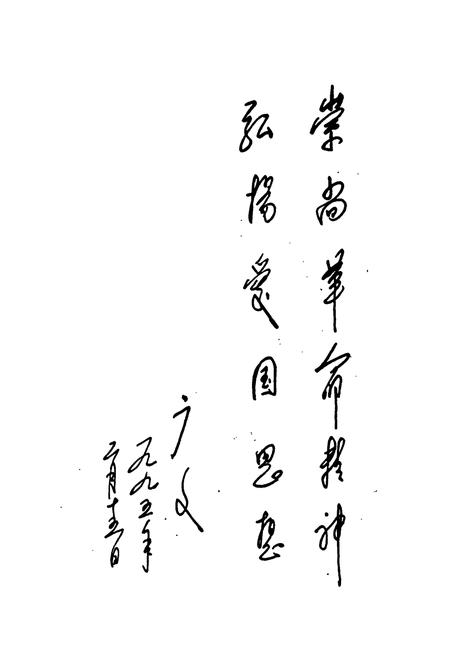 崇尚革命精神
弘揚爱国思想
广文
一九九五年
二月十五日